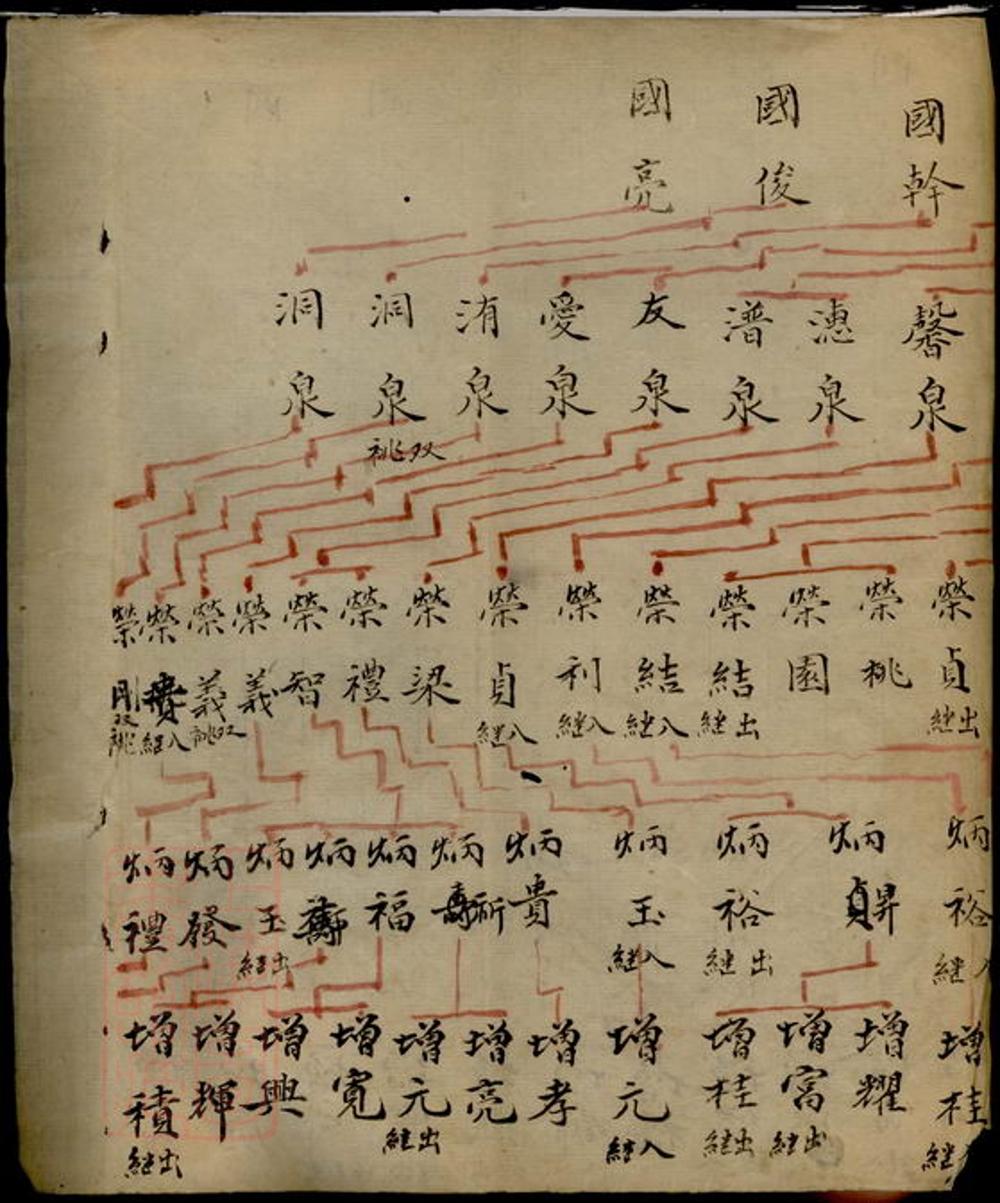 國幹
國俊
國亮
馨泉
潓泉
潽泉
友泉
愛泉
洧泉
洞泉 双祧
洞泉
榮貞 出継
榮桃
榮園
榮結 出継
榮結 入継
榮利 入継
榮貞 入継
榮梁
榮禮
榮智
榮義
榮義 双祧
榮貴 入継
榮剛 双祧
炳裕 入継
炳昇
炳裕 出継
炳玉 入継
炳貴
炳祈
炳福
炳壽
炳玉 出継
炳發
炳禮
增桂 入継
增耀
增富 出継
增桂 出継
增元 入継
增孝
增亮
增元 出継
增寛
增興
增輝
增積 出継